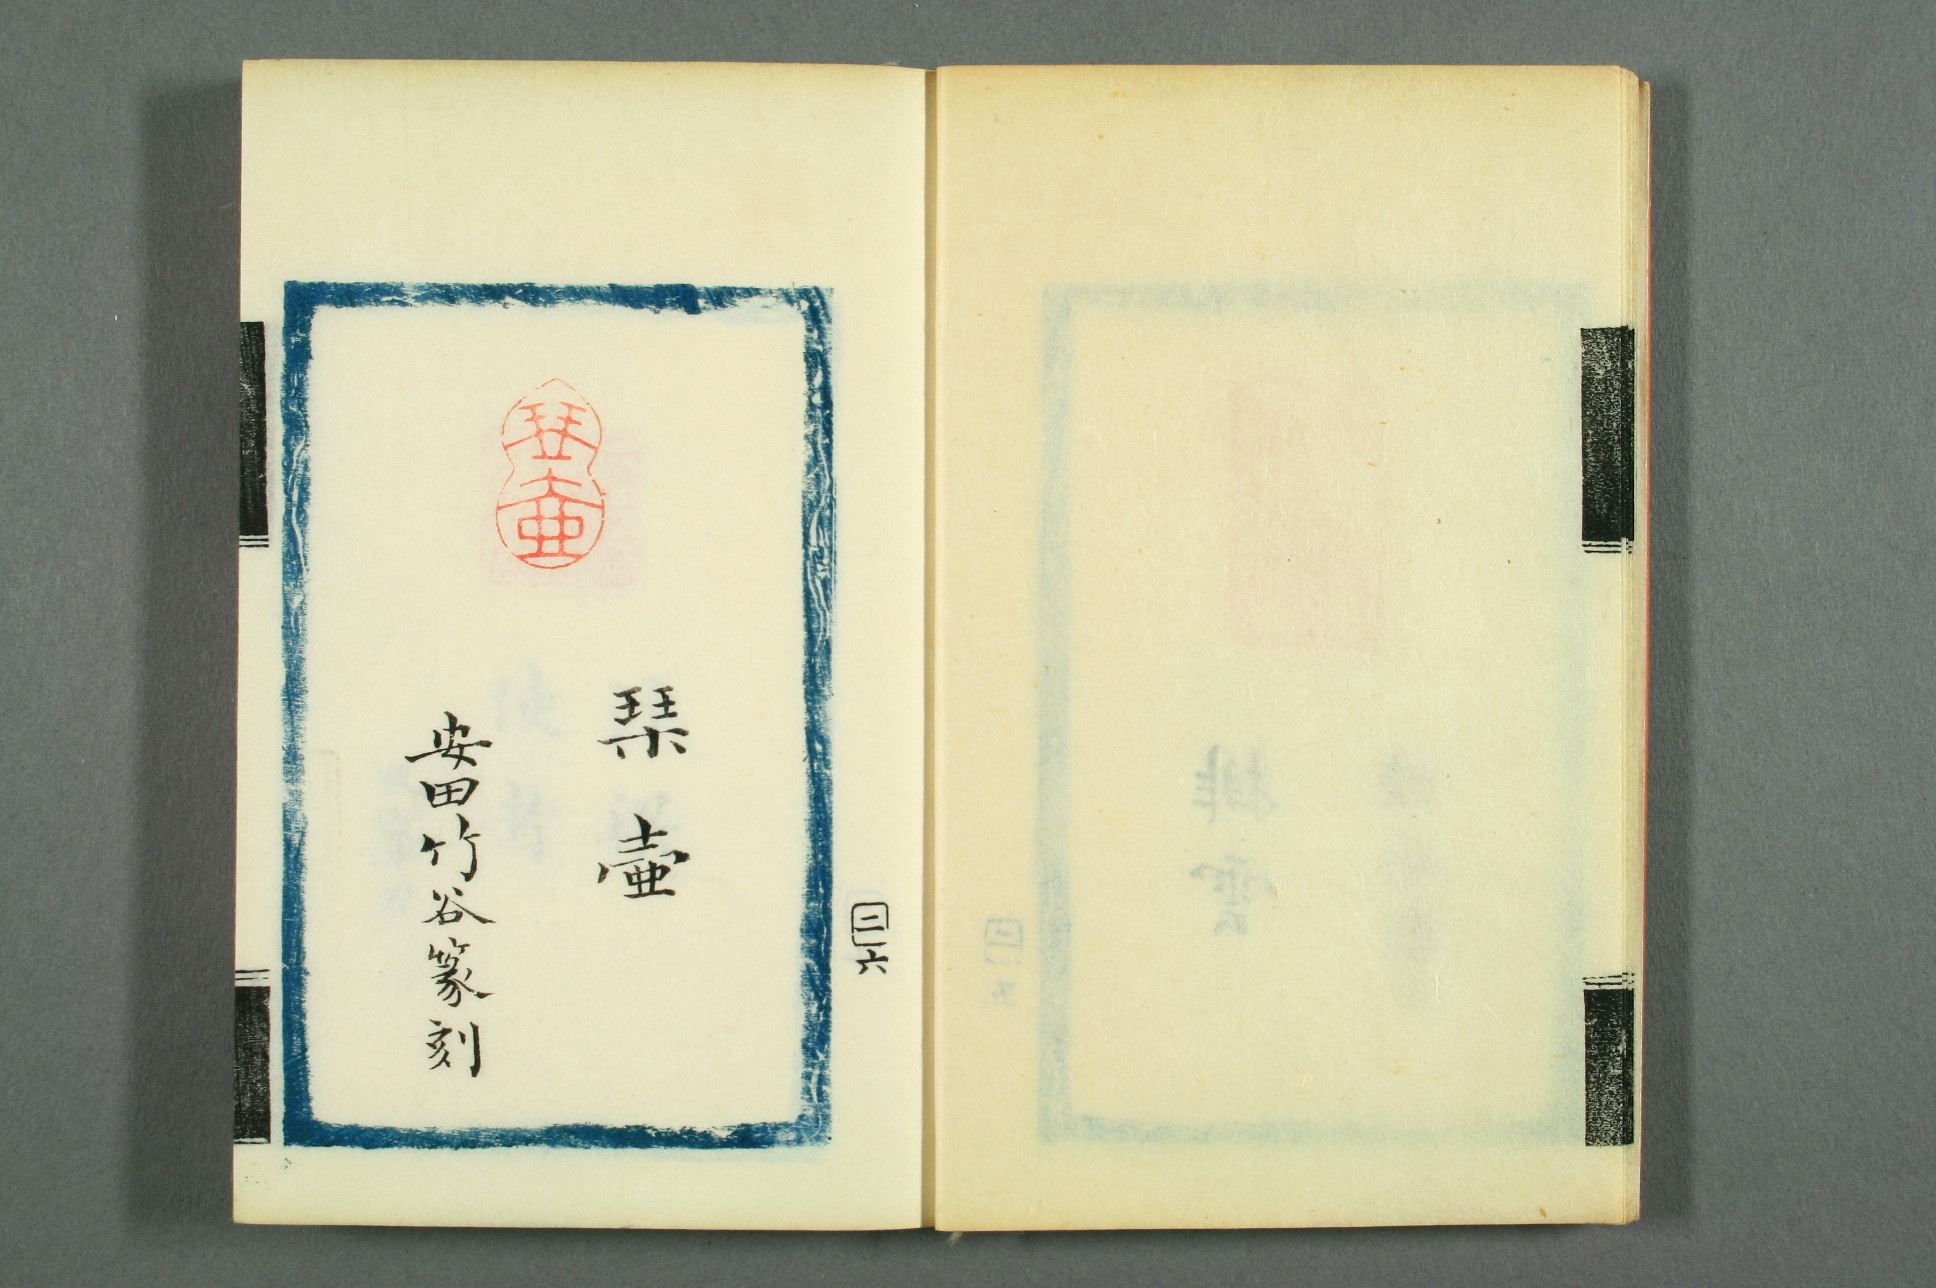 二六
琴壷
琹壷
安田竹谷篆刻